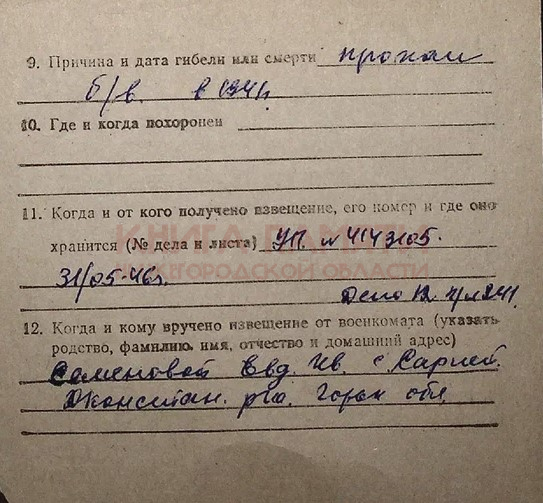 9. Причина и дата гибели или смерти пропал
б/в. в 1941г.
10. Где и когда похоронен
11. Когда и от кого получено извещение, его номер и где оно
хранится (№ дела и листа) УП. №
КНИГА ПАМЯТИ
НИЖЕГОРОДСКОЙ ОБЛАСТИ
31/05-46г.
Дело 12
12. Когда и кому вручено извещение от военкомата (указать
родство, фамилию, имя, отчество и домашний адрес)
Семеновой Евд. Ив. с.
Д.Констан. р-на. Горьк обл.